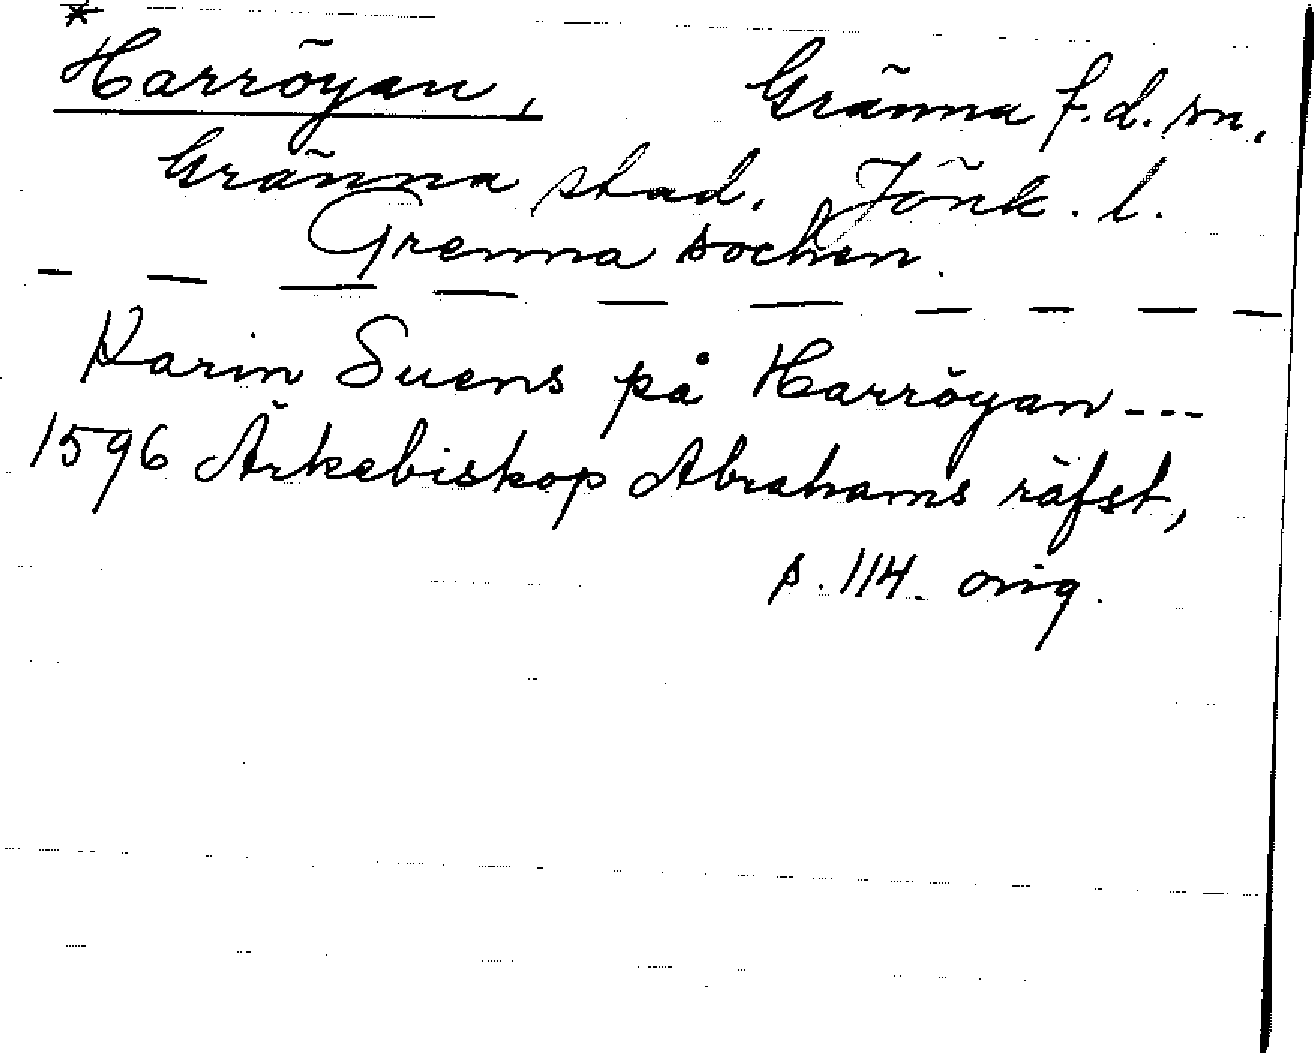 *
Harröyan, Gränna f.d. sn.
Gränna stad. Jönk. l.
Grenna sochen.
Karin Suens på Harröyan ---
1596 Ärkebiskop Abrahams räfst,
s. 114. orig.